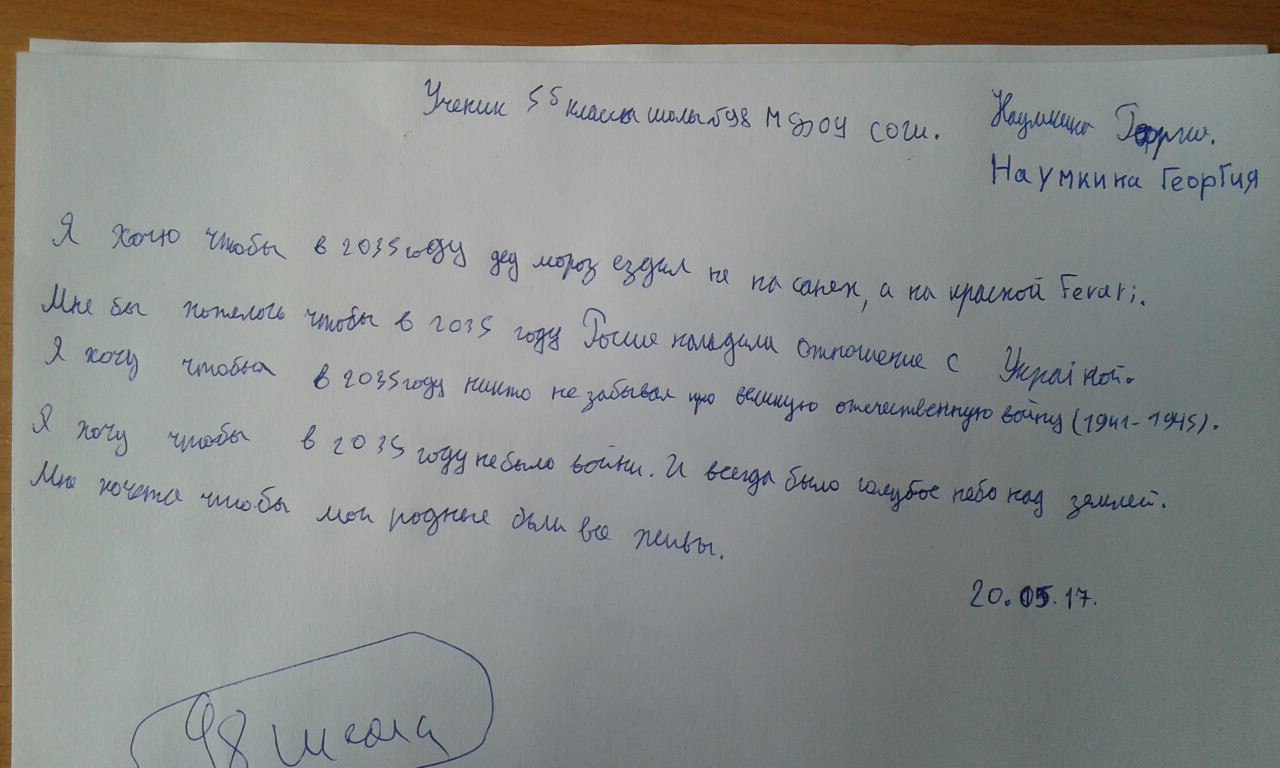 Ученик 5 Б классы школы №98 МБОУ СОШ. Наумкина Георгия.
Наумкина Георгия
Я хочю чтобы в 2035 году дед мороз ездил не на санях, а на красной Ferari.
Мне бы хотелось чтобы в 2035 году Россие наладила отношение с Украіной.
Я хочу чтобы в 2035 году никто не забывал про великую отечественную войну (1941-1945).
Я хочу чтобы в 2035 году небыло войни. И всегда было голубое небо над землей.
Мне хочется чтобы мои родные были все живы.
20.05.17.
98 школа